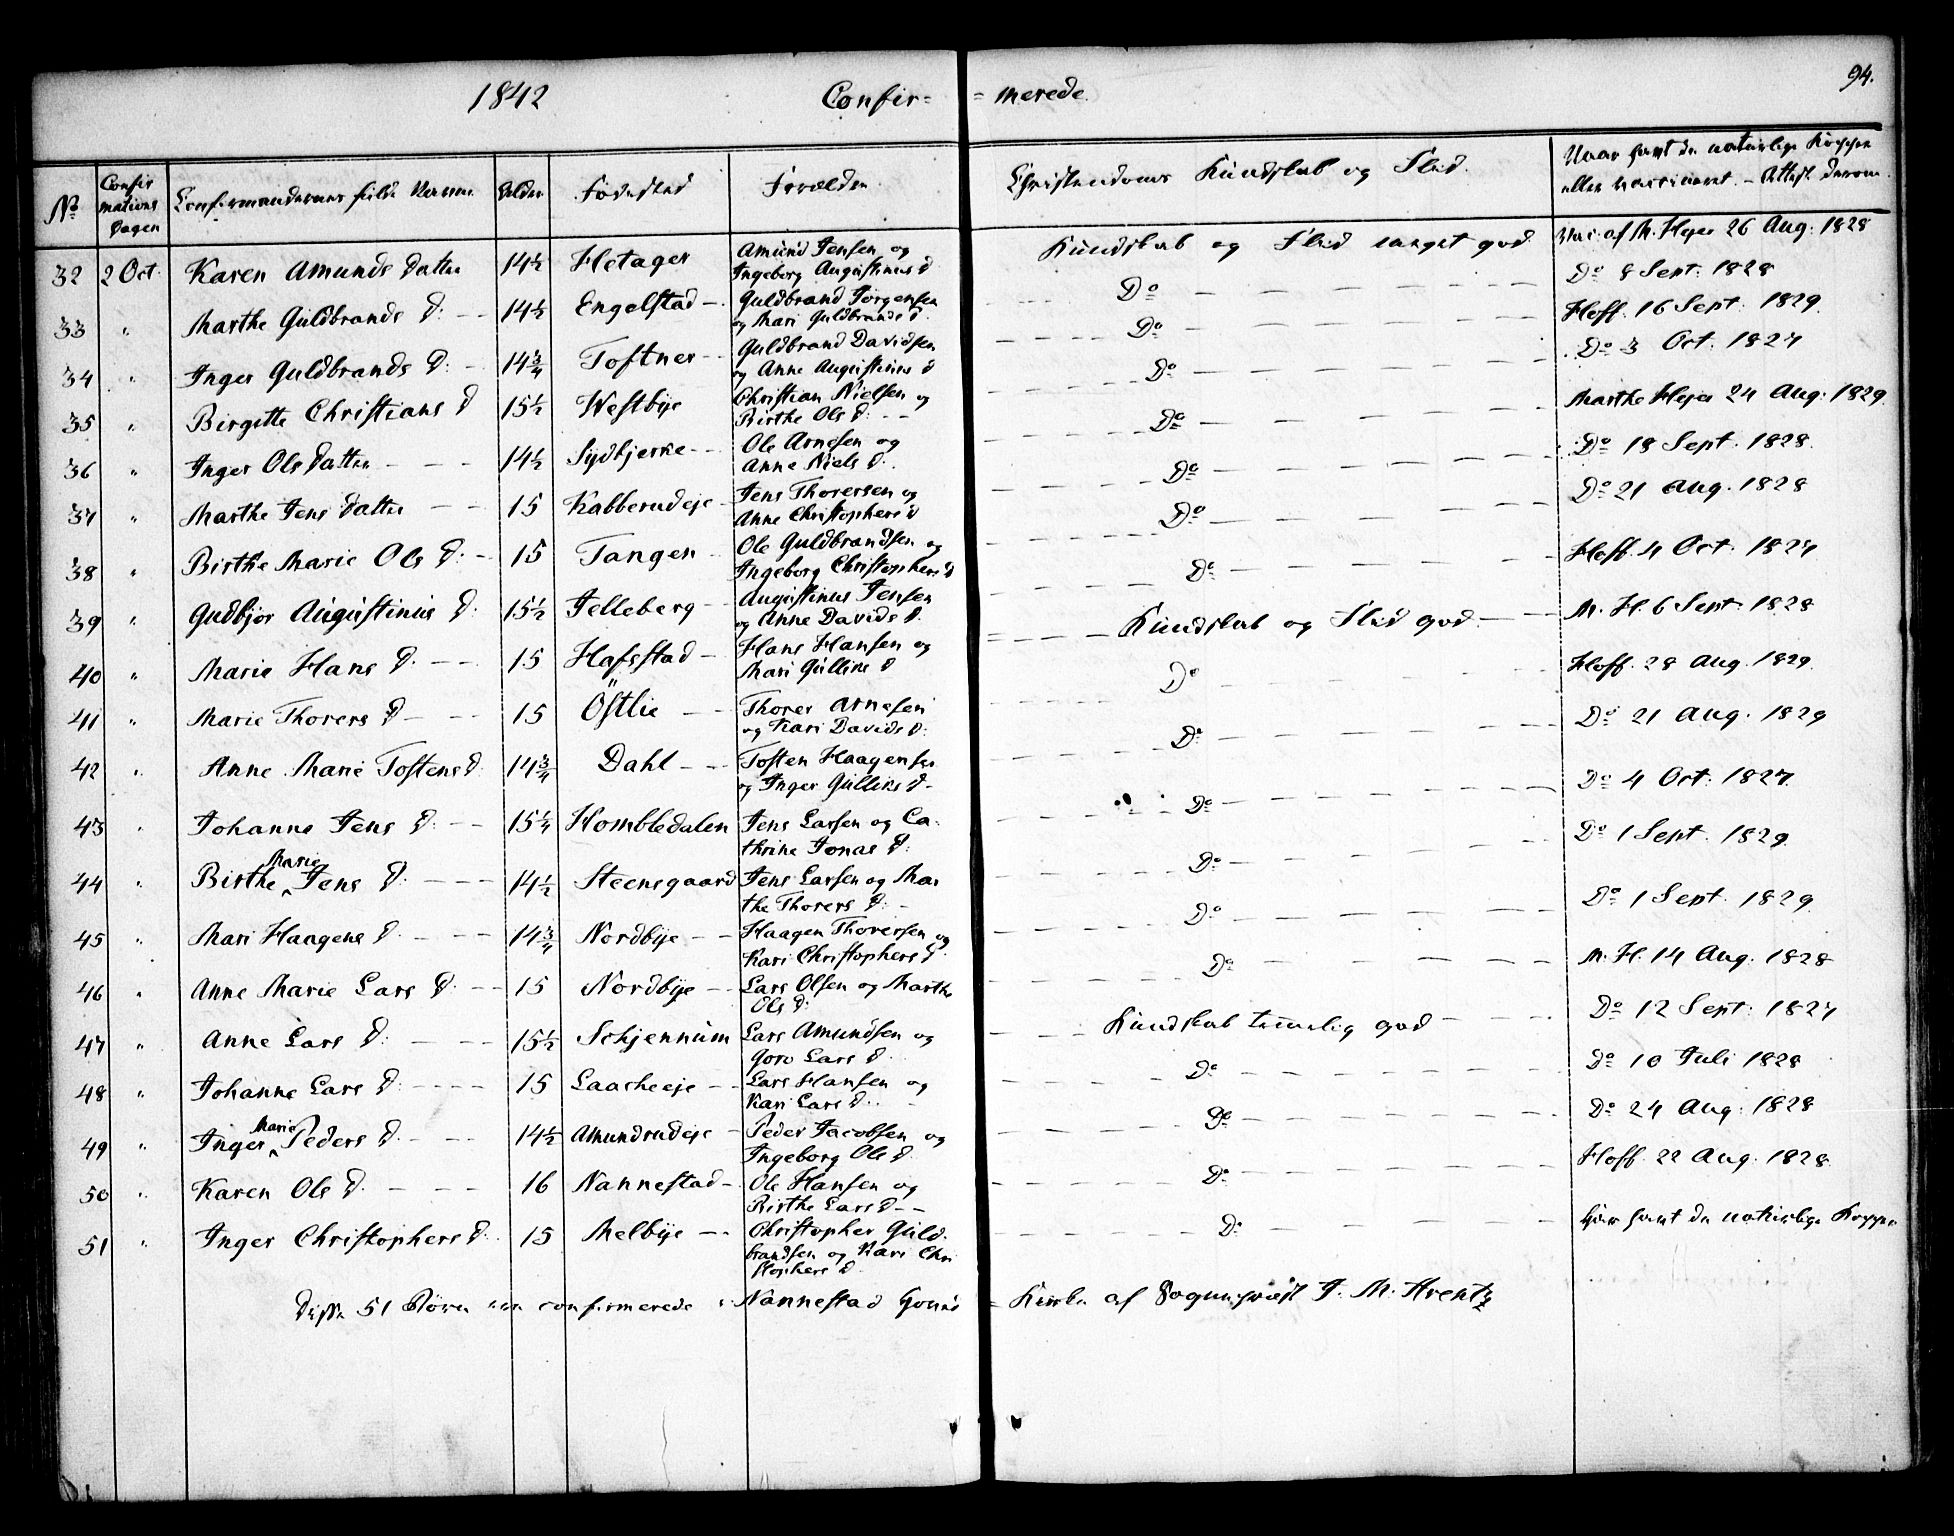 1842 Confir= =merede. 94.
No Confirmations Dagen Confirmandernes fulde Navne Alder Fødested Forældre Christendoms Kundskab og Flid. Naar havt de naturlige Kopper eller vaccineret. – Attest derom.
32 2 Oct. Karen Amunds Datter 14½ Hetager Amund Jensen og Ingeborg Augustinus D Kundskab og Flid meget god. Vac. af M. Hejer 26 Aug. 1828
33 " Marthe Guldbrands D. 14½ Engelstad Guldbrand Jørgensen og Mari Guldbrands D. Do Do 8 Sept. 1828
34 " Inger Guldbrands D. 14¾ Toftner Guldbrand Davidsen og Anne Augustinus D Do Hoff. 16 Sept. 1829.
35 " Birgitte Christians D 15½ Westbye Christian Nielsen og Birthe Ols D. Do Do 3 Oct. 1827
36 " Inger Ols Datter 14½ Sydbjerke Ole Arnesen og Anne Niels D. Do Marthe Hejer 24 Aug. 1829
37 " Marthe Jens Datter 15 Kabberudeje Jens Thorersen og Anne Christophers D Do Do 18 Sept. 1828.
38 " Birthe Marie Ols D. 15 Tangen Ole Guldbrandsen og Ingeborg Christophers D Do Do 21 Aug. 1828
39 " Gudbjør Augustinus D. 15½ Jelleberg Augustinus Jensen og Anne Davids D. Do Hoff. 4 Oct. 1827
40 " Marie Hans D. 15 Hafsstad Hans Hansen og Mari Gulliks D Kundskab og Flid god. M. H. 6 Sept. 1828
41 " Marie Thorers D 15 Östlie Thorer Arnesen og Kari Davids D. Do Hoff. 28 Aug. 1829.
42 " Anne Marie Tostens D. 14¾ Dahl Tosten Haagensen og Inger Gulliks D. Do Do 21 Aug. 1829
43 " Johanne Jens D. 15¼ Hombledalen Jens Larsen og Cathrine Jonas D. Do Do 4 Oct. 1827.
44 " Birthe Marie Jens D. 14½ Steensgaard Jens Larsen og Marthe Thorers D. Do Do 1 Sept. 1829.
45 " Mari Haagens D. 14¾ Nordbye Haagen Thorersen og Kari Christophers D. Do Do 1 Sept. 1829.
46 " Anne Marie Lars D. 15 Nordbye Lars Olsen og Marthe Ols D. Do M. H. 14 Aug. 1828
47 " Anne Lars D. 15½ Schjennum Lars Amundsen og Goro Lars D. Kundskab temmelig god Do 12 Sept. 1827
48 " Johanne Lars D. 15 Laacheeje Lars Hansen og Kari Lars D. Do Do 10 Juli 1828
49 " Inger Marie Peders D. 14½ Amundrudeje Peder Jacobsen og Ingeborg Ols D. Do Do 24 Aug. 1828
50 " Karen Ols D. 16 Nannestad Ole Hansen og Birthe Lars D. Do Hoff. 22 Aug. 1828.
51 " Inger Christophers D. 15 Melbye Christopher Guldbrandsen og Kari Christophers D. Do Har havt de naturlige Kopper
Disse 51 Børn ere confirmerede i Nannestad Hoved= =Kirke af Sognepræst J. M. Arentz